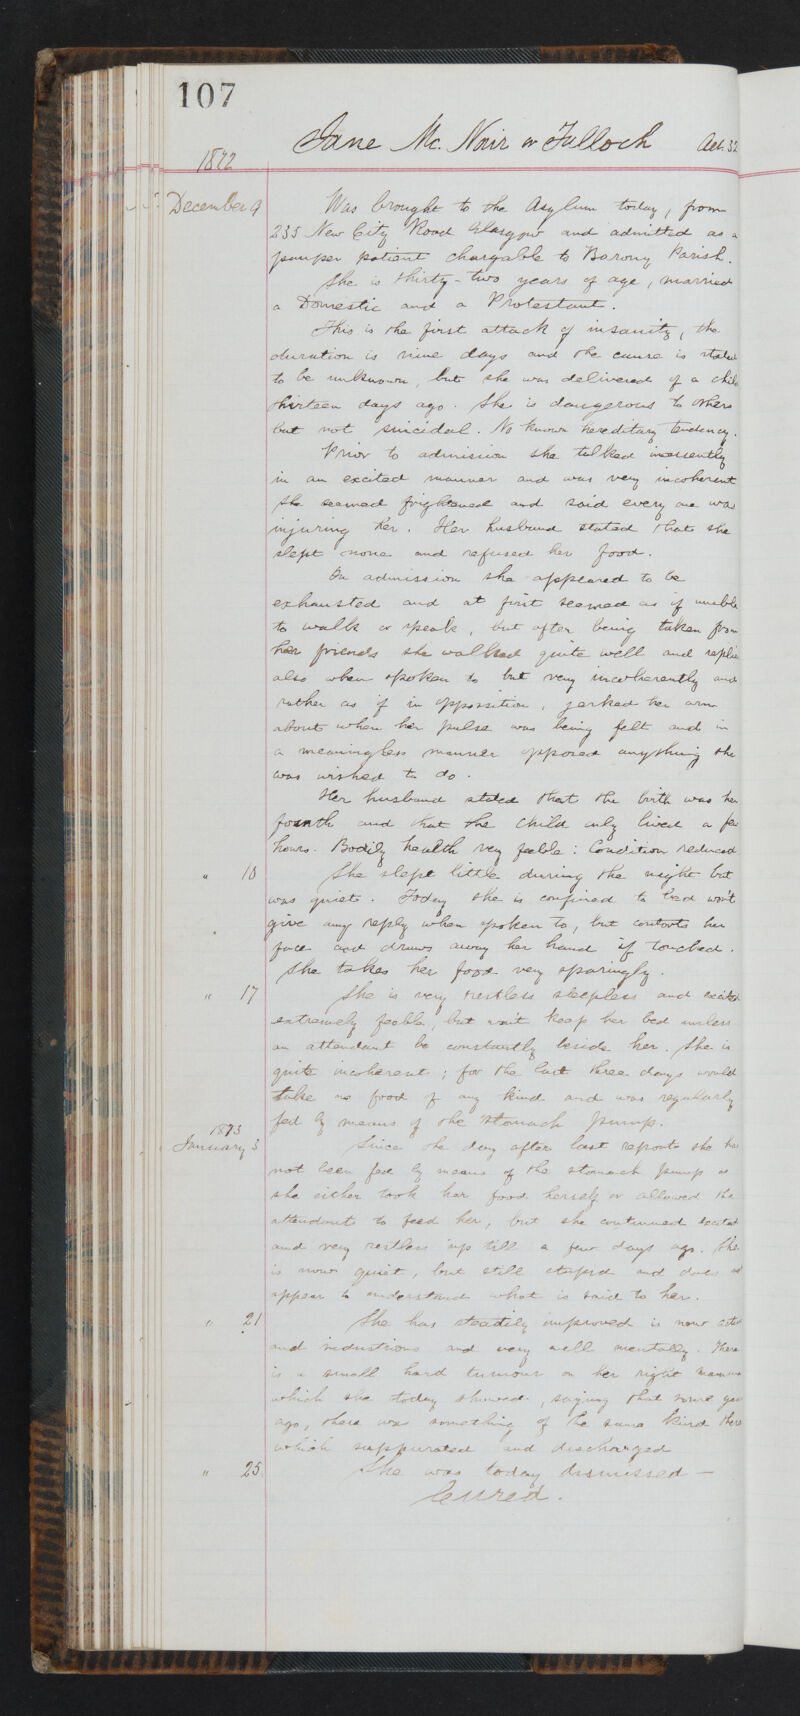 107
Jane Mc. Nair or Tulloch Aet. 32
1872
December 9 Was brought to the Asylum today, from
235 New City Road Glasgow and admitted as a
pauper patient chargable to Barony Parish.
She is thirty-two years of age, married
a Domestic and a Protestant.
This is the first attack of insanity, the
duration is nine days and the cause is stated
to be unknown, but she was delivered of a child
thirteen days ago. She is dangerous to others
but not suicidal. No known hereditary tendency.
Prior to admission she talked incessently
in an excited manner and was very incoherent
she seemed frightened and said every one was
injuring her. Her husband stated that she
slept none and refused her food.
On admission she appeared to be
exhausted and at first seemed as if unable
to walk or speak, but after being taken from
her friends she walked quite well and replied
also when spoken to but very incoherently and
rather as if in opposition, jerked her arm
about when her pulse was being felt and in
a meaningless manner opposed anything she
was wished to do.
Her husband stated that the birth was her
fourth and that the child only lived a few
hours. Bodily health very feeble: Condition reduced
" 10 She slept little during the night but
was quiet. Today she is confined to bed won't
give any reply when spoken to, but contorts her
face and draws away her hand if touched.
She takes her food very sparingly.
" 17 She is very restless sleepless and excited
extremely feeble, but won't keep her bed unless
an attendant be constantly beside her. She is
quite incoherent; for the last three days would
take no food of any kind and was regularly
fed by means of the stomach pump.
1873
January 3 Since the day after last report she has
not been fed by means of the stomach pump as
she either took her food herself or allowed the
attendants to feed her, but she continued excited
and very restless up till a few days ago. She
is now quiet, but still stupid and does not
appear to understand what is said to her.
" 21 She has steadily improved is now active
and industrious and very well mentally. There
is a small hard tumour on her right mamma
which she today showed, saying that some years
ago, there was something of the same kind there
which suppurated and discharged
" 25 She was today dismissed —
Cured.